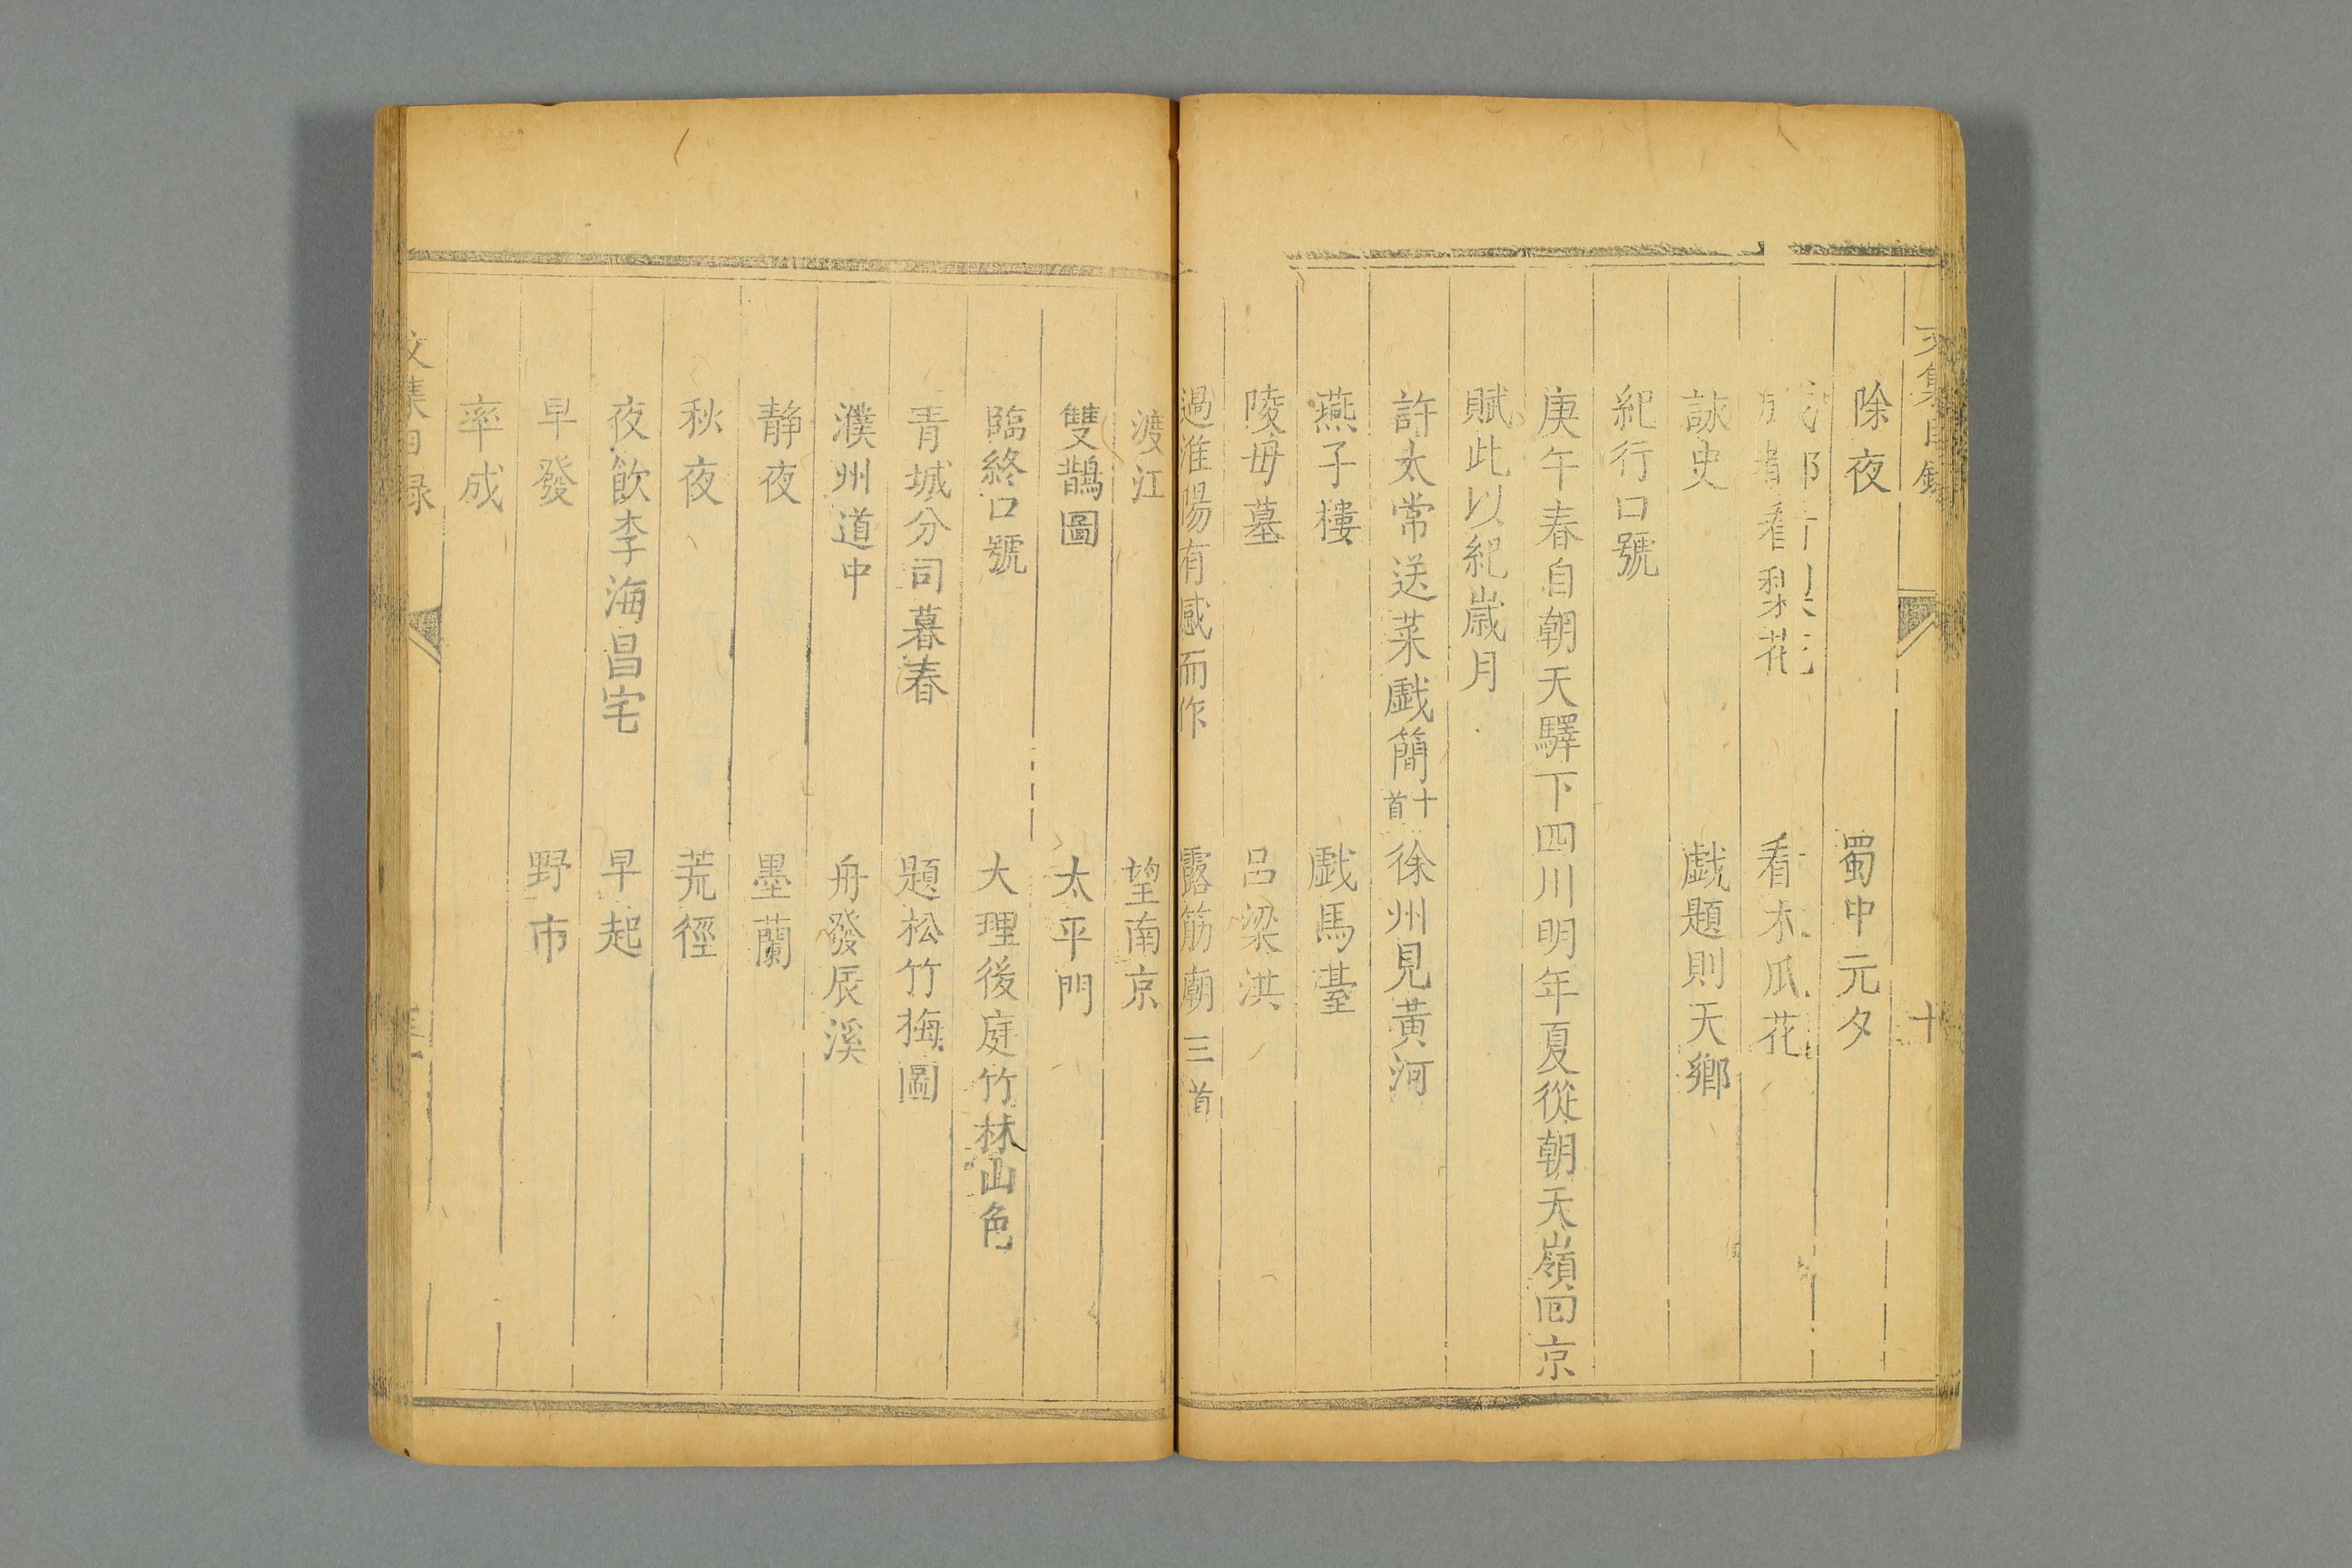 文集目錄 十
除夜 蜀中元夕
看梨花 看木瓜花
詠史 戱題則天鄉
紀行口號
庚午春自朝天驛下四川明年夏從朝天嶺回京
賦此以紀歲月
許太常送菜戱簡十首 徐州見黃河
燕子樓 戱馬臺
陵母墓 呂梁洪
過淮陽有感而作 露筋廟三首
渡江 望南京
雙鵲圖 太平門
臨終口號 大理後庭竹林山色
青城分司暮春 題松竹梅圖
濮州道中 舟發辰溪
靜夜 墨蘭
秋夜 荒徑
夜飲李海昌宅 早起
早發 野市
率成
文集目録